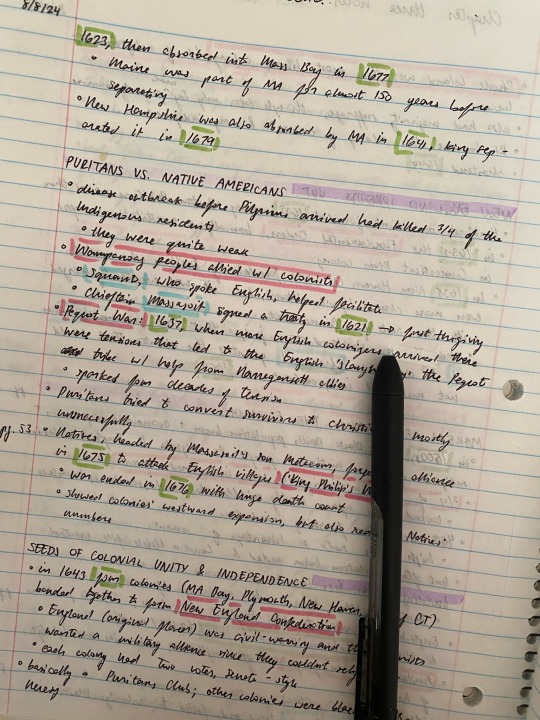 8/8/24
1623, then absorbed into Mass Bay in 1677
• Maine was part of MA for almost 150 years before
separating
• New Hampshire was also absorbed by MA in 1641, king sep-
arated it in 1679
PURITANS VS. NATIVE AMERICANS
• disease outbreak before Pilgrims arrived had killed 3/4 of the
Indigenous residents
• they were quite weak
• Wampanoag peoples allied w/ colonists
• Squanto, who spoke English, helped facilitate
• Chieftain Massasoit signed a treaty in 1621 → first thxgiving
• Pequot War: 1637 when more English colonizers arrived there
were tensions that led to the English the Pequot
tribe w/ help from Narragansett allies
• sparked from decades of tension
• Puritans tried to convert survivors to mostly
unsuccessfully
pg. 53 • Natives, headed by Massasoit's son Metacom, alliance
in 1675 to attack English villages (King Philip's
• war ended in 1676 with huge death count
• slowed colonies' westward expansion, but also Natives'
numbers
SEEDS OF COLONIAL UNITY & INDEPENDENCE
• in 1643 four colonies (MA Bay, Plymouth, New Haven, CT)
banded together to form New England Confederation
• England (original players) was civil-warring and
wanted a military alliance since they couldn't
• each colony had two votes, senate-style
• basically a Puritans Club; other colonies were
heresy